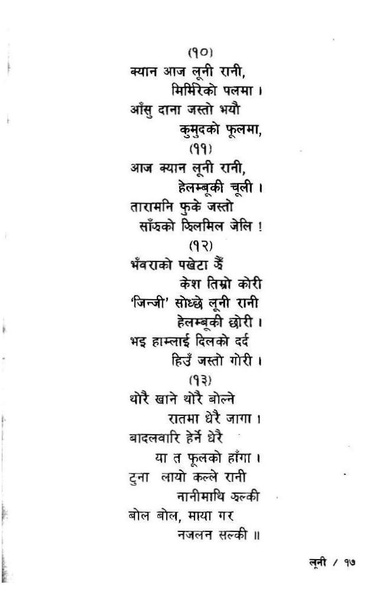 (१०)
क्यान आज लूनी रानी,
मिर्मिरेको पलमा ।
आँसु दाना जस्तो भयौ
कुमुदको फूलमा,
(११)
आज क्यान लूनी रानी,
हेलम्बूकी चूली ।
तारामनि फुके जस्तो
साँझको झिलमिल जेलि !
(१२)
भँवराको पखेटा झैँ
केश तिम्रो कोरी
'जिन्जी' सोध्छे लूनी रानी
हेलम्बूकी छोरी ।
भइ हाम्लाई दिलको दर्द
हिउँ जस्तो गोरी ।
(१३)
थोरै खाने थोरै बोल्ने
रातमा धेरै जागा ।
बादलवारि हेर्ने धेरै
या त फूलको हाँगा ।
टुना लायो कल्ले रानी
नानीमाथि झल्की
बोल बोल, माया गर
नजलन सल्की ॥
लूनी / १७